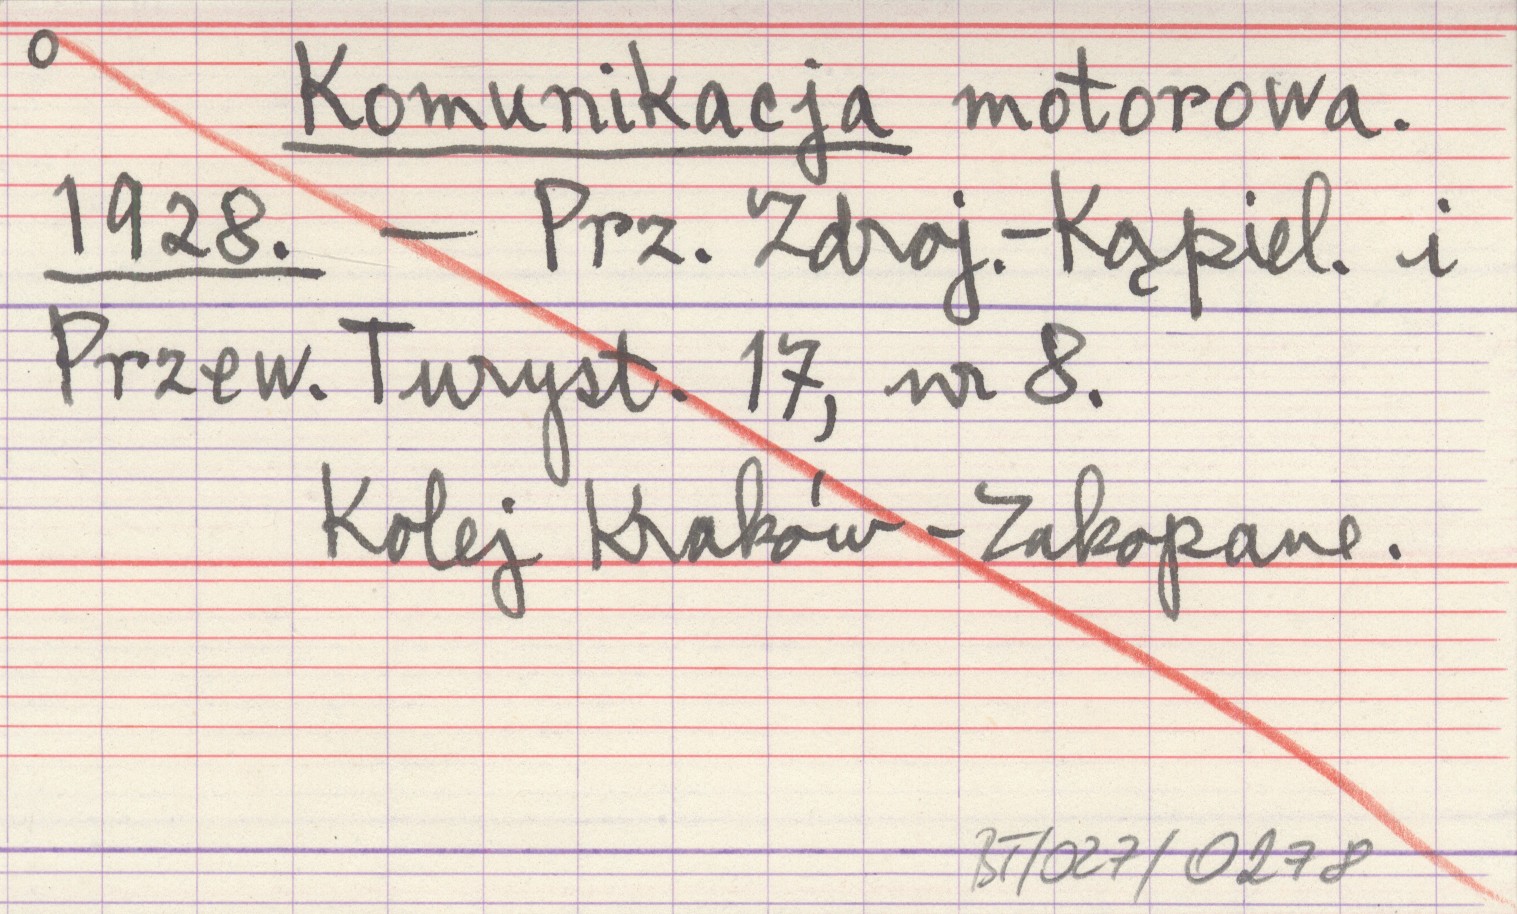 o
Komunikacja motorowa.
1928. — Prz. Zdroj.-Kąpiel. i
Przew. Turyst. 17, nr 8.
Kolej Kraków-Zakopane.
BT/027/0278